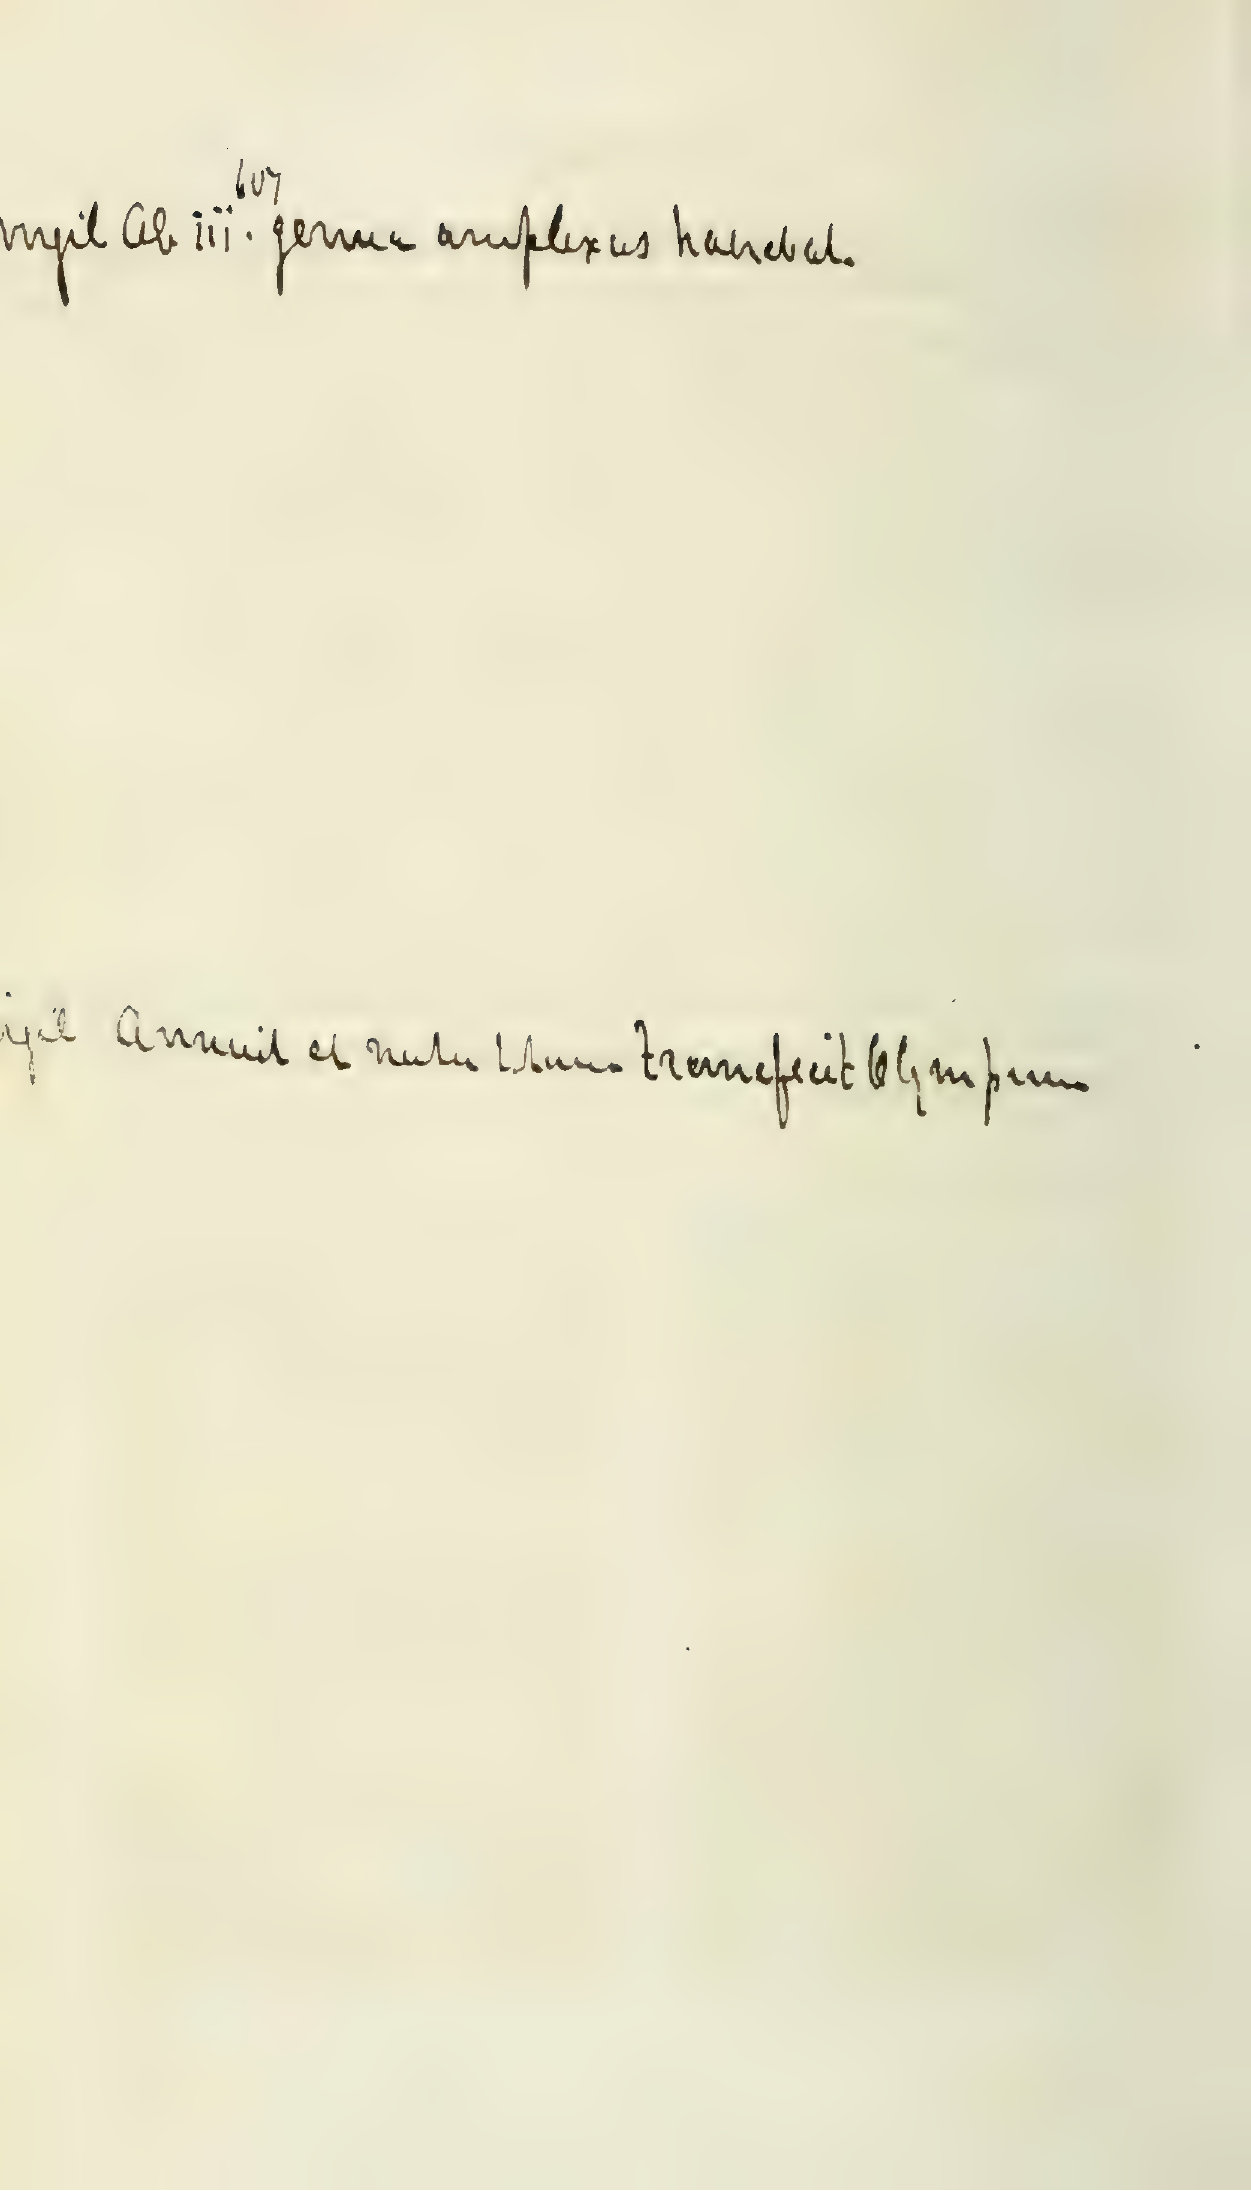 607
Virgil Æ. iii. genua amplexus haerebat.
Virgil Annuit et nutu totum tremefecit Olympum